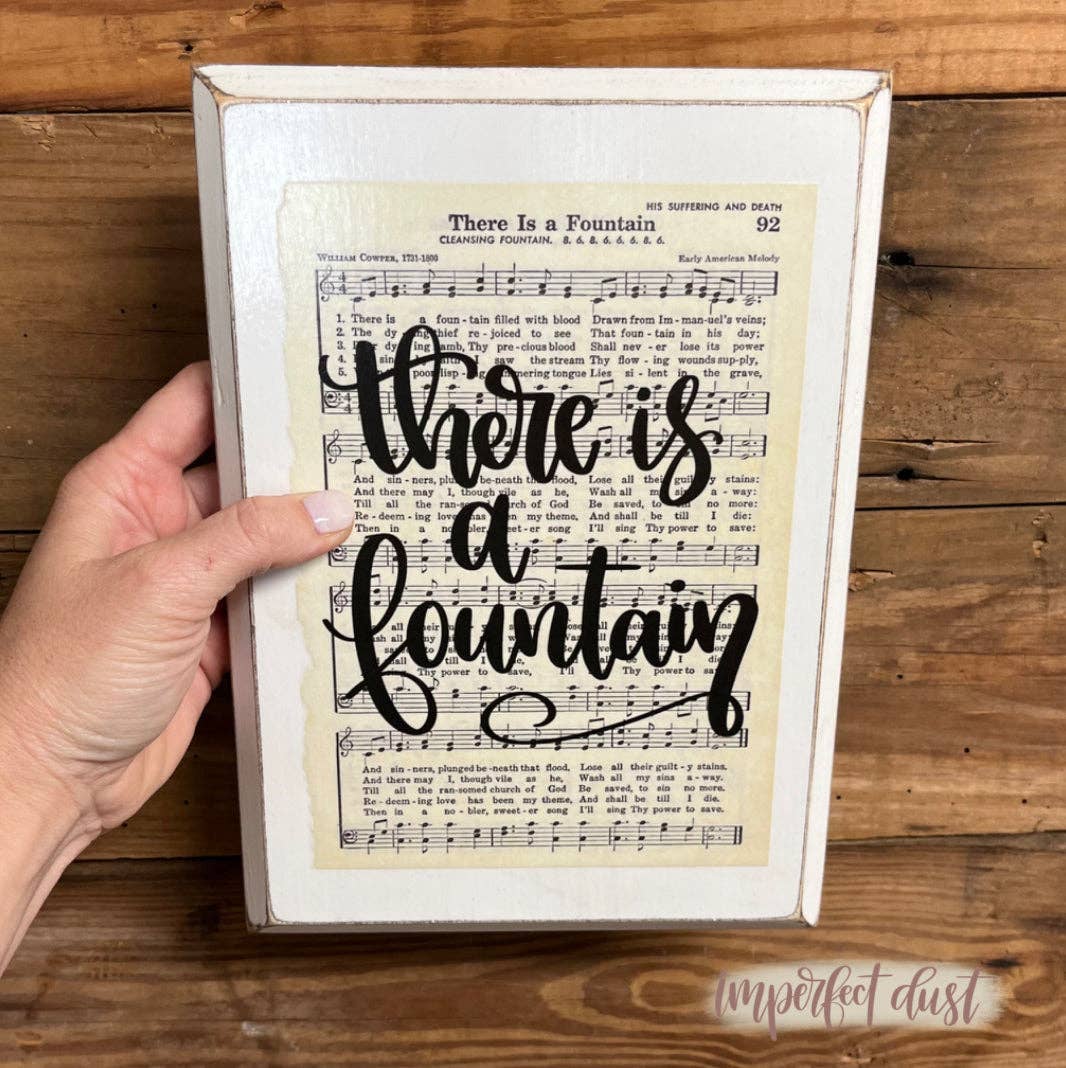 HIS SUFFERING AND DEATH
There Is a Fountain 92
CLEANSING FOUNTAIN. 8. 6. 8. 6. 6. 6. 8. 6.
WILLIAM COWPER, 1731-1800 Early American Melody
1. There is a foun-tain filled with blood Drawn from Im-man-uel's veins;
2. The dy thief re-joiced to see That foun-tain in his day;
3. dy ing Lamb, Thy pre-cious blood Shall nev-er lose its power
4. I saw the stream Thy flow-ing wounds sup-ply,
5. poor lisp tongue Lies si-lent in the grave,
there is
And sin-ners, be-neath flood, Lose all their stains:
And there may I, though vile as he, Wash all a-way:
Till all the ran church of God Be saved, to no more:
Re-deem-ing love my theme, And shall be till I die:
Then in a er song I'll sing Thy power to save:
a
fountain
all
till I
Thy power to save, I'll Thy power to
And sin-ners, plunged be-neath that flood, Lose all their guilt-y stains.
And there may I, though vile as he, Wash all my sins a-way.
Till all the ran-somed church of God Be saved, to sin no more.
Re-deem-ing love has been my theme, And shall be till I die.
Then in a no-bler, sweet-er song I'll sing Thy power to save.
imperfect dust